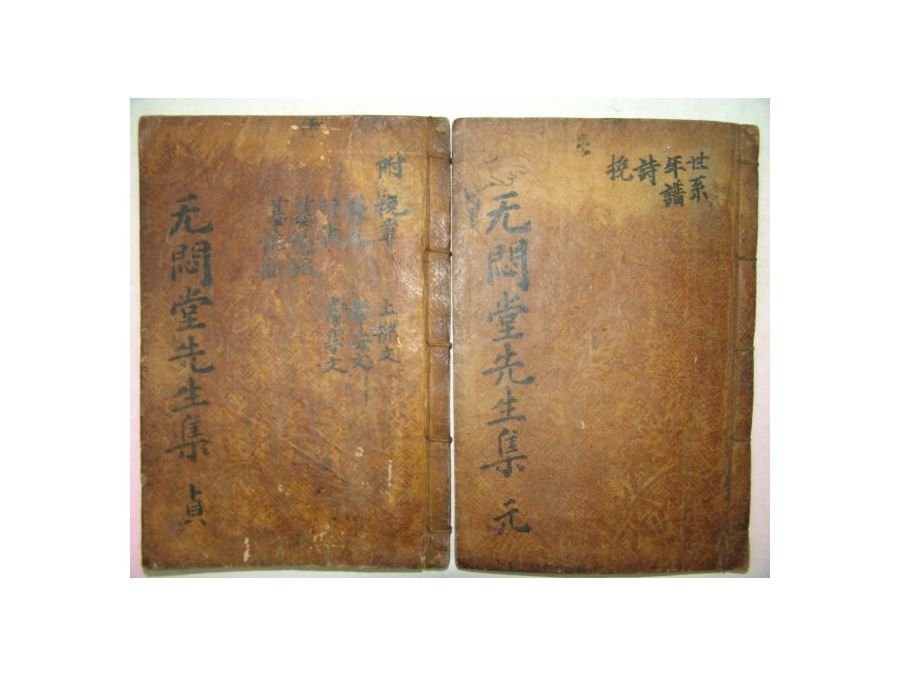 世系
年譜
詩
挽
无悶堂先生集 元
附 挽章 上樑文
奉安文
常享文
无悶堂先生集 貞